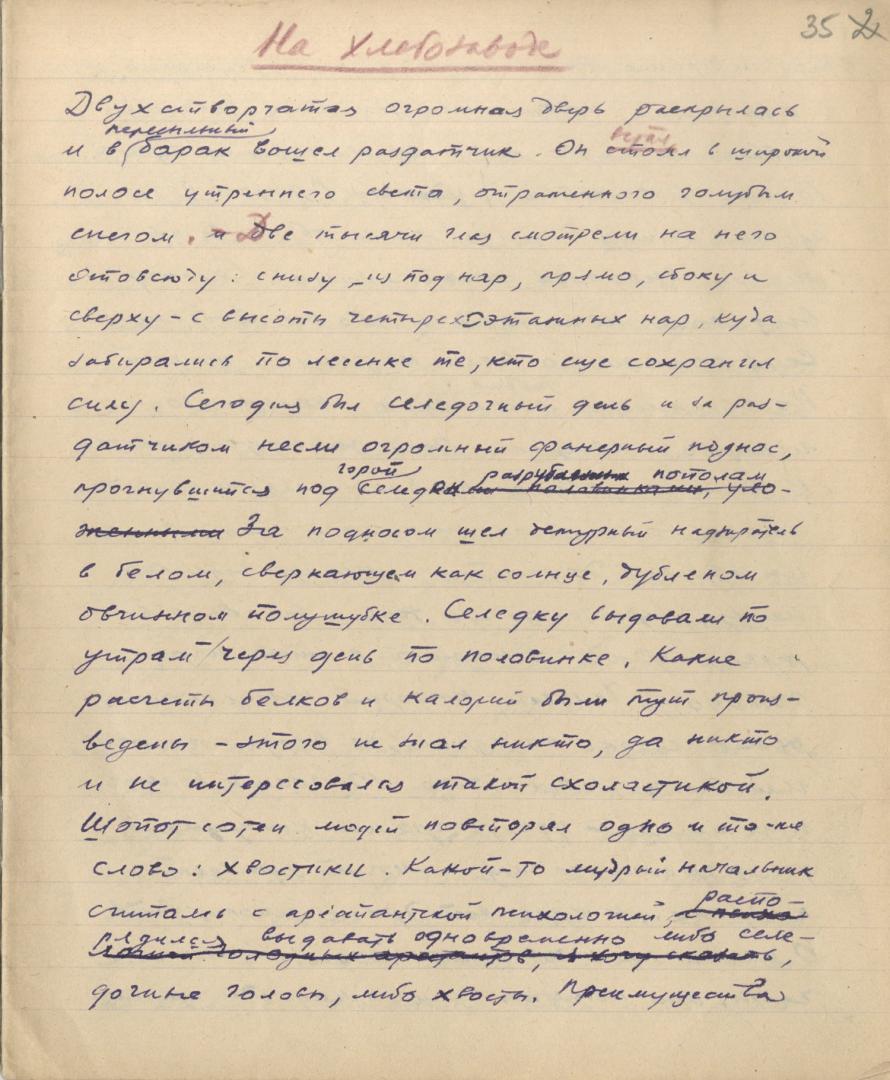 35 2
На хлебозаводе
Двухстворчатая огромная дверь раскрылась
пересыльный встал
и в барак вошел раздатчик. Он стоял в широкой
полосе утреннего света, отраженного голубым
снегом. и Две тысячи глаз смотрели на него
отовсюду: снизу – из под нар, прямо, сбоку и
сверху – с высоты четырехэтажных нар, куда
забирались по лесенке те, кто еще сохранил
силу. Сегодня был селедочный день и за раз-
датчиком несли огромный фанерный поднос,
горой разрубленных пополам
прогнувшийся под селедки половинками, уло-
женными За подносом шел дежурный надзиратель
в белом, сверкающем как солнце, дубленом
овчинном полушубке. Селедку выдавали по
утрам – через день по половинке. Какие
расчеты белков и калорий были тут произ-
ведены – этого не знал никто, да никто
и не интересовался такой схоластикой.
Шопот сотен людей повторял одно и то-же
слово: хвостики. Какой-то мудрый начальник
распо-
считаясь с арестантской психологией,
рядился выдавать одновременно либо селе-
голодных арестантов, я хочу сказать,
дочные головы, либо хвосты. Преимущества